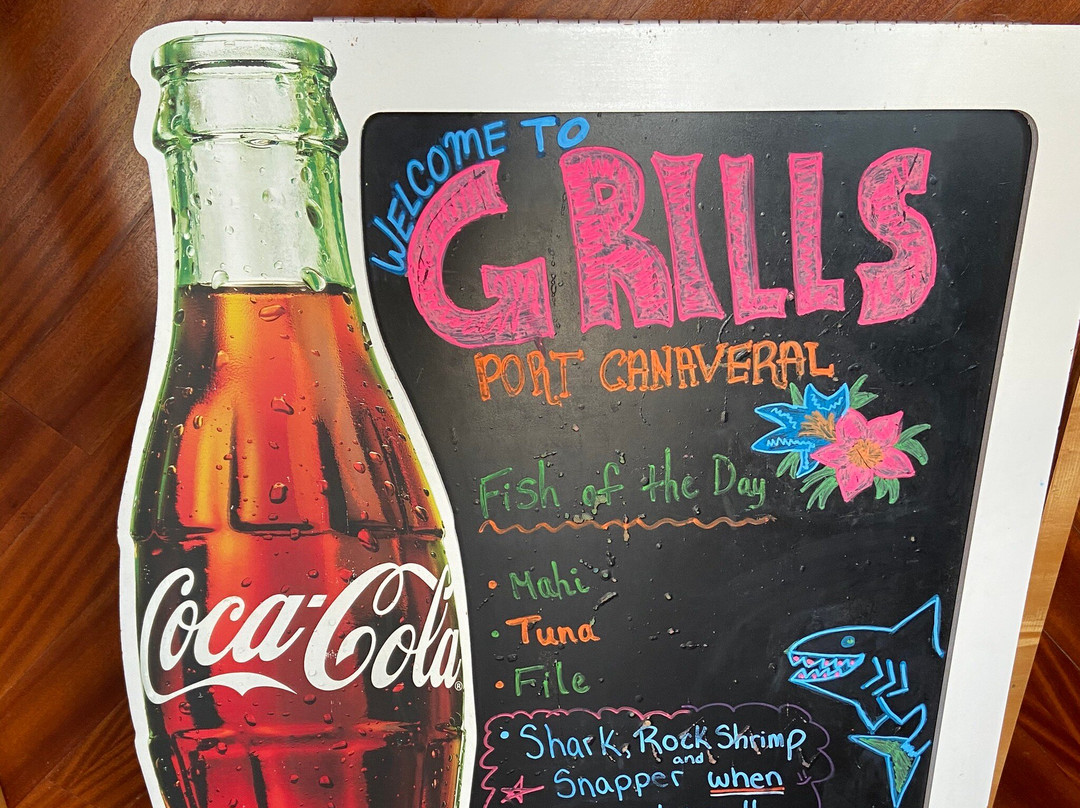 WELCOME TO
GRILLS
PORT CANAVERAL
Fish of the Day
• Mahi
• Tuna
• File
• Shark, Rock Shrimp
and
Snapper when
Coca-Cola®